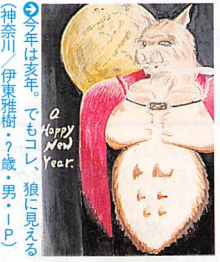 ➲今年は亥年。でもコレ、狼に見える
(神奈川／伊東雅樹・?歳・男・IP)
a
Happy
New
Year.